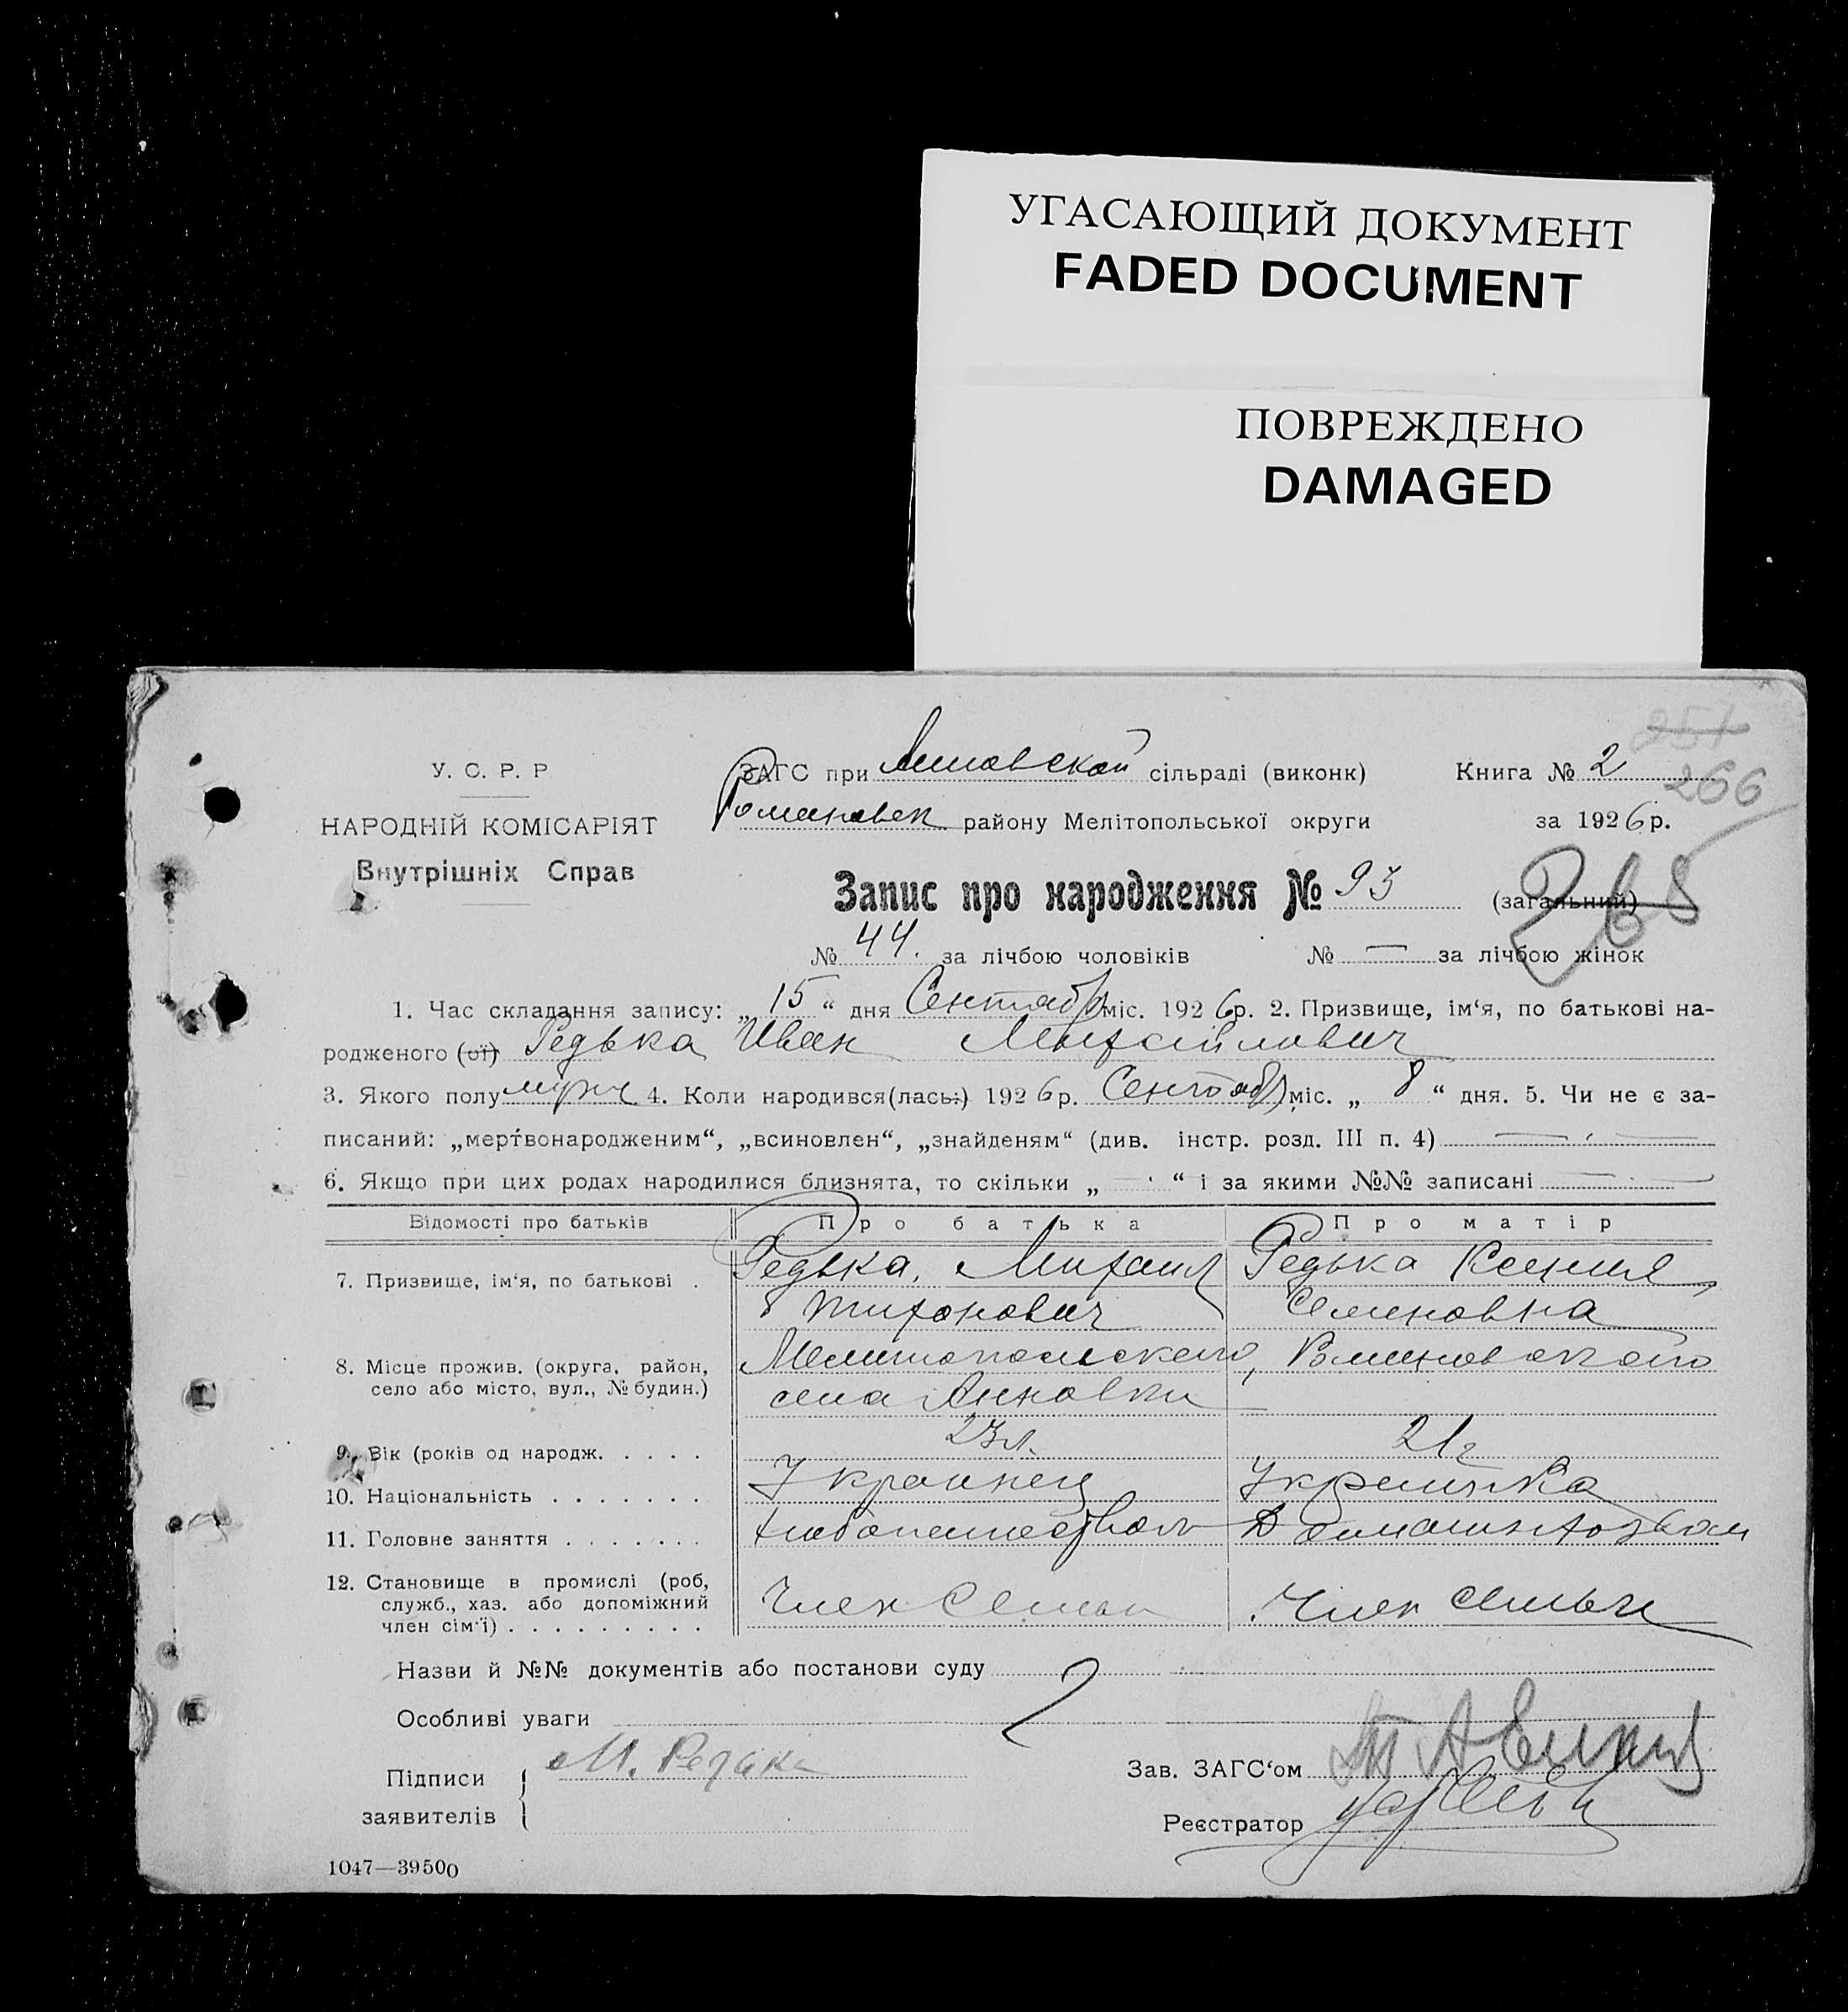 УГАСАЮЩИЙ ДОКУМЕНТ
FADED DOCUMENT
ПОВРЕЖДЕНО
DAMAGED
251
266
268
У. С. Р. Р
НАРОДНІЙ КОМІСАРІЯТ
Внутрішніх Справ
ЗАГС при Анновской сільраді (виконк) Книга № 2
Романовск району Мелітопольської округи за 1926 р.
Запис про народження № 93 (загальний)
№ 44. за лічбою чоловіків № — за лічбою жінок
1. Час складання запису: „15“ дня Сентябр міс. 1926 р. 2. Призвище, ім‘я, по батькові на-
родженого (ої) Редька Иван Михайлович
3. Якого полу муж 4. Коли народився(лась:) 1926 р. Сентябр міс. „ 8 “ дня. 5. Чи не є за-
писаний: „мертвонародженим“, „всиновлен“, „знайденям“ (див. інстр. розд. III п. 4) — —
6. Якщо при цих родах народилися близнята, то скільки „ — “ і за якими №№ записані — —
Відомості про батьків Про батька Про матір
7. Призвище, ім‘я, по батькові . Редька, Михаил Редька Ксения
Тихонович Семеновна
8. Місце прожив. (округа, район, Мелитопольского, Романовского
село або місто, вул., № будин.) села Анновки
9. Вік (років од народж. . . . . 23 л. 21 г
10. Національність . . . . . . . Украинец Украинка
11. Головне заняття . . . . . . . Хлебопашеством Домашн хозвом
12. Становище в промислі (роб, Член Семьи Член семьи
служб., хаз. або допоміжний
член сім‘ї) . . . . . . . . .
Назви й №№ документів або постанови суду
Особливі уваги
Підписи М. Редька Зав. ЗАГС‘ом
заявителів Реєстратор
1047—39500